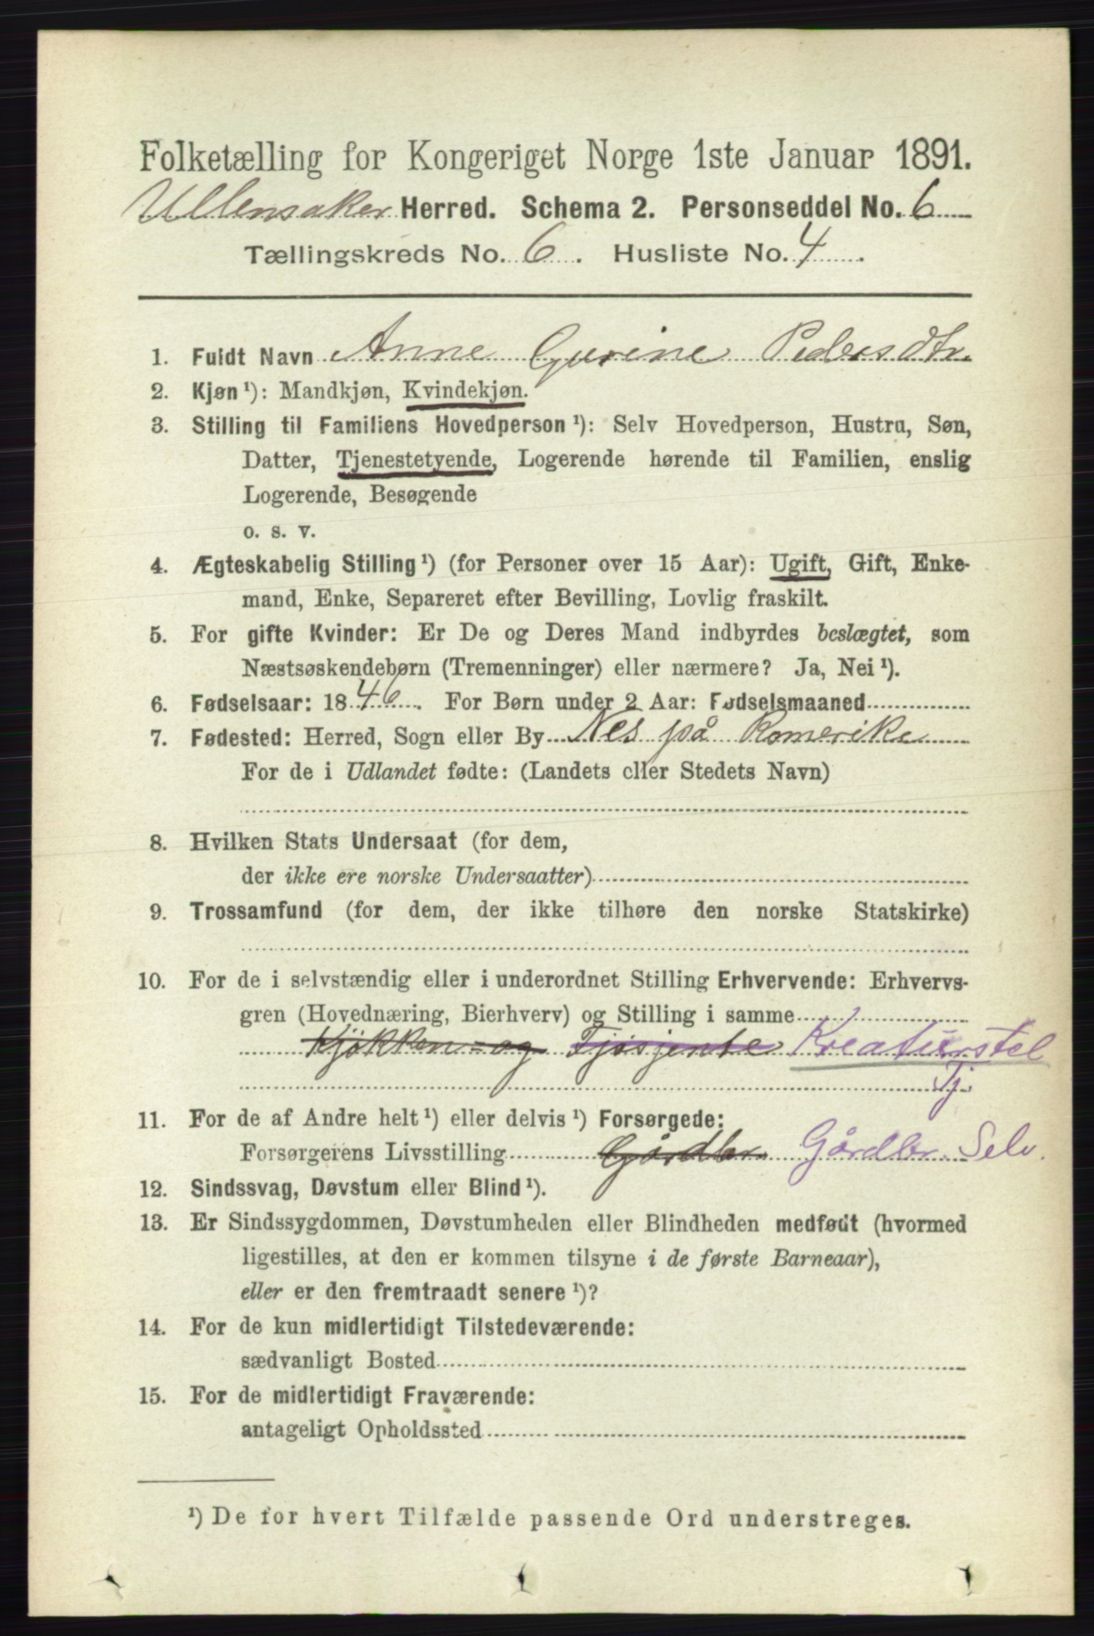 Folketælling for Kongeriget Norge 1ste Januar 1891.
Ullensaker Herred. Schema 2. Personseddel No. 6
Tællingskreds No. 6. Husliste No. 4.
1. Fuldt Navn Anne Gurine Pedersdtr.
2. Kjøn¹): Mandkjøn, Kvindekjøn.
3. Stilling til Familiens Hovedperson¹): Selv Hovedperson, Hustru, Søn,
Datter, Tjenestetyende, Logerende hørende til Familien, enslig
Logerende, Besøgende
o. s. v.
4. Ægteskabelig Stilling¹) (for Personer over 15 Aar): Ugift, Gift, Enke-
mand, Enke, Separeret efter Bevilling, Lovlig fraskilt.
5. For gifte Kvinder: Er De og Deres Mand indbyrdes beslægtet, som
Næstsøskendebørn (Tremenninger) eller nærmere? Ja, Nei¹).
6. Fødselsaar: 1846. For Børn under 2 Aar: Fødselsmaaned
7. Fødested: Herred, Sogn eller By Nes på Romerike
For de i Udlandet fødte: (Landets eller Stedets Navn)
8. Hvilken Stats Undersaat (for dem,
der ikke ere norske Undersaatter)
9. Trossamfund (for dem, der ikke tilhøre den norske Statskirke)
10. For de i selvstændig eller i underordnet Stilling Erhvervende: Erhvervs-
gren (Hovednæring, Bierhverv) og Stilling i samme
Kjøkken- og Fjøsjente Kreaturstel
Tj.
11. For de af Andre helt¹) eller delvis¹) Forsørgede:
Forsørgerens Livsstilling Gårdbr. Gårdbr. Selv.
12. Sindssvag, Døvstum eller Blind¹).
13. Er Sindssygdommen, Døvstumheden eller Blindheden medfødt (hvormed
ligestilles, at den er kommen tilsyne i de første Barneaar),
eller er den fremtraadt senere¹)?
14. For de kun midlertidigt Tilstedeværende:
sædvanligt Bosted
15. For de midlertidigt Fraværende:
antageligt Opholdssted
¹) De for hvert Tilfælde passende Ord understreges.